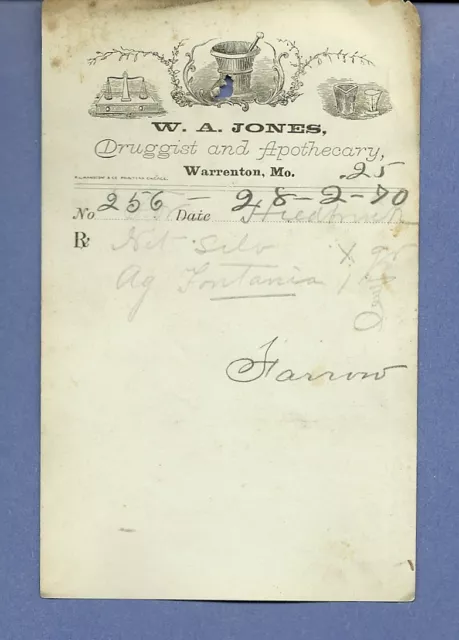 W. A. JONES,
Druggist and Apothecary,
Warrenton, Mo. .25
No 256 Date 28-2-70
Rx Nit Silv X gr
Ag Fontania
Farrow